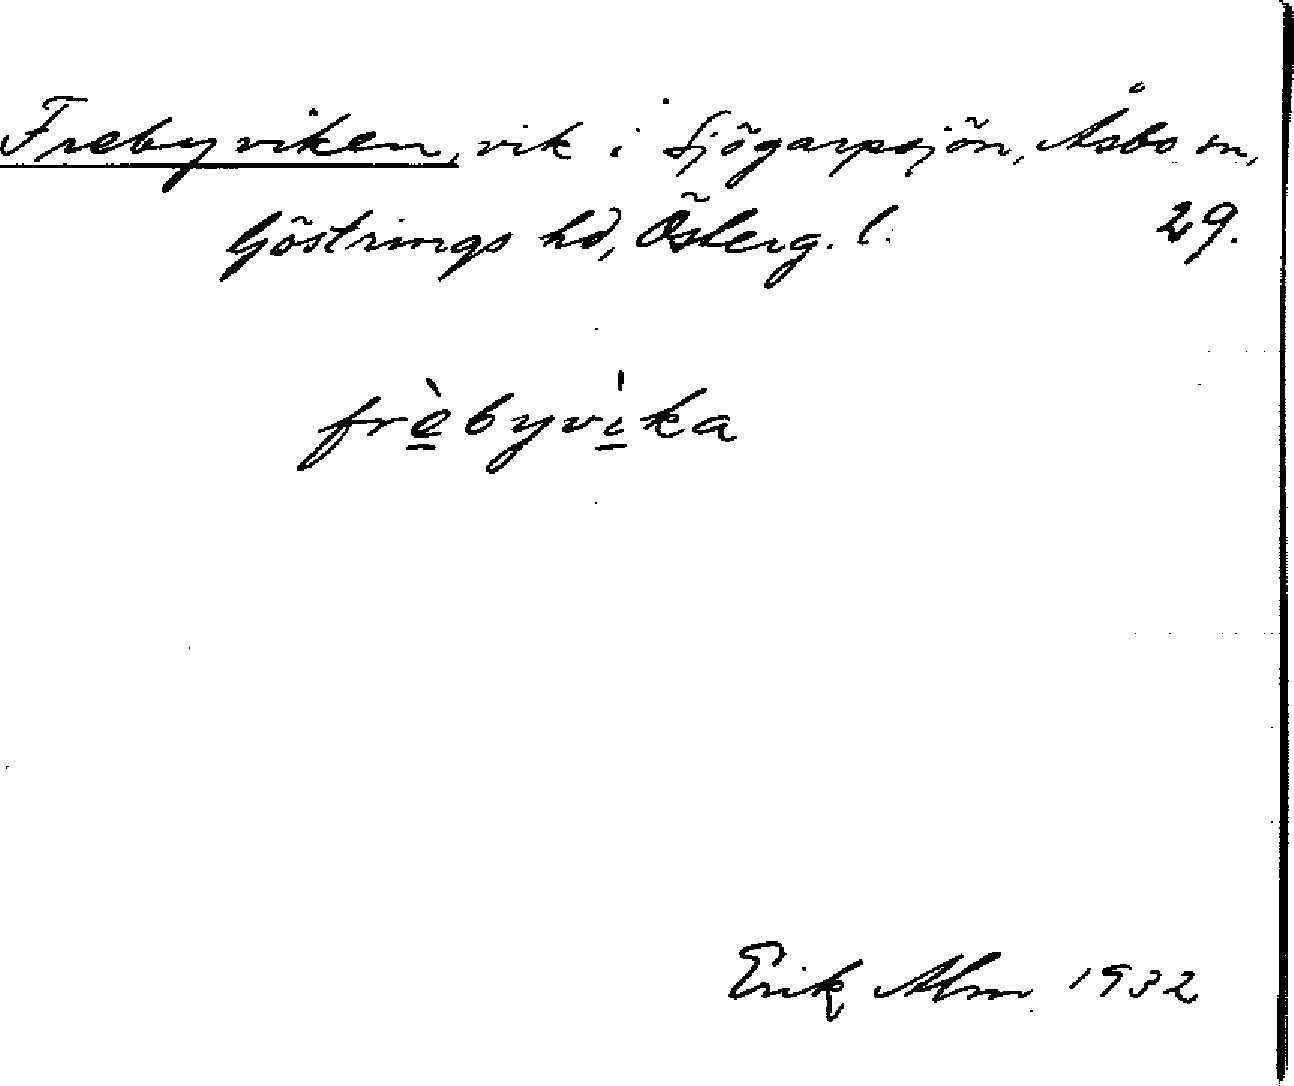 Frebyviken, vik i Sjögarpsjön, Åsbo sn,
Göstrings hd, Österg. l. 29.
frèbyvìka
Erik Alm 1932